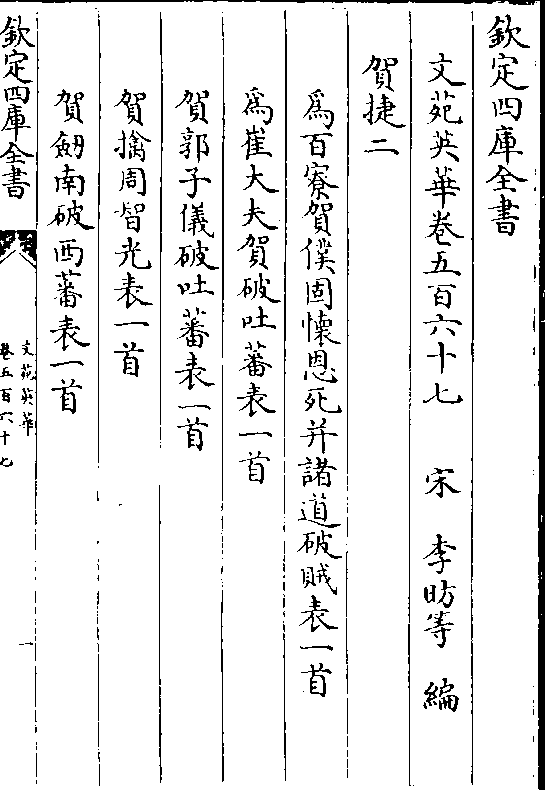 欽定四庫全書
文苑英華卷五百六十七　宋　李昉等　編
賀捷二
為百寮賀僕固懷恩死并諸道破賊表一首
為崔大夫賀破吐蕃表一首
賀郭子儀破吐蕃表一首
賀擒周智光表一首
賀劒南破西蕃表一首
欽定四庫全書
文苑英華
卷五百六十七
一